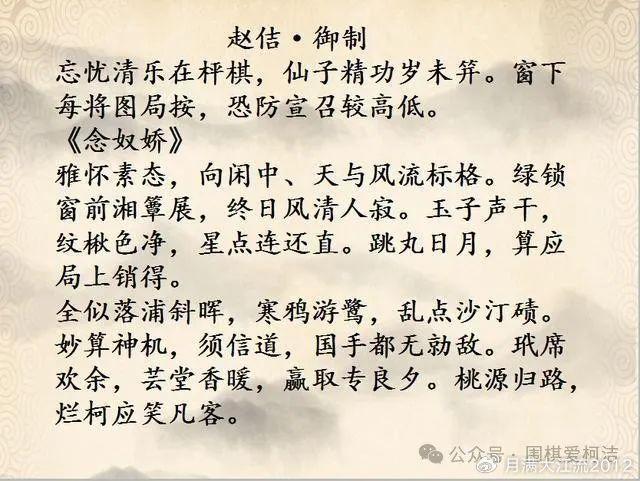 赵佶·御制
忘忧清乐在枰棋，仙子精功岁未笄。窗下
每将图局按，恐防宣召较高低。
《念奴娇》
雅怀素态，向闲中、天与风流标格。绿锁
窗前湘簟展，终日风清人寂。玉子声干，
纹楸色净，星点连还直。跳丸日月，算应
局上销得。
全似落浦斜晖，寒鸦游鹭，乱点沙汀碛。
妙算神机，须信道，国手都无勍敌。玳席
欢余，芸堂香暖，赢取专良夕。桃源归路，
烂柯应笑凡客。
公众号·围棋爱柯洁
月满大江流2012